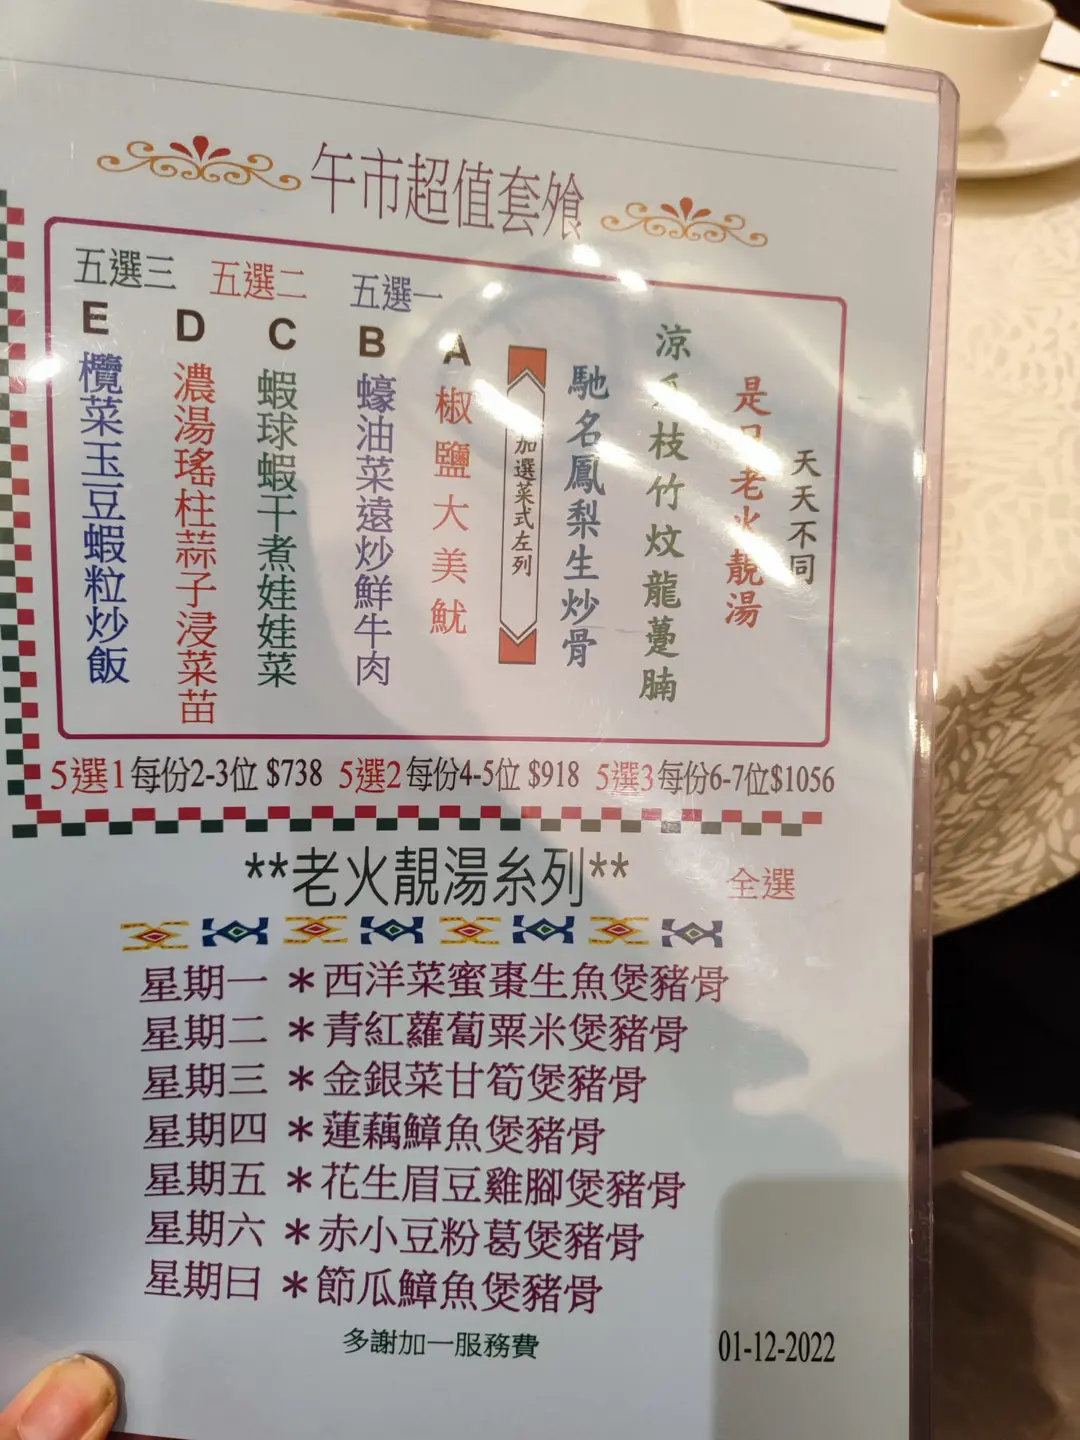 午市超值套飧
天天不同
是日老火靚湯
涼瓜枝竹炆龍躉腩
馳名鳳梨生炒骨
加選菜式左列
五選一
五選二
五選三
A
椒鹽大美魷
B
蠔油菜遠炒鮮牛肉
C
蝦球蝦干煮娃娃菜
D
濃湯瑤柱蒜子浸菜苗
E
欖菜玉豆蝦粒炒飯
5選1每份2-3位 $738 5選2每份4-5位 $918 5選3每份6-7位$1056
**老火靚湯系列**
全選
星期一 *西洋菜蜜棗生魚煲豬骨
星期二 *青紅蘿蔔粟米煲豬骨
星期三 *金銀菜甘筍煲豬骨
星期四 *蓮藕鱆魚煲豬骨
星期五 *花生眉豆雞腳煲豬骨
星期六 *赤小豆粉葛煲豬骨
星期日 *節瓜鱆魚煲豬骨
多謝加一服務費
01-12-2022